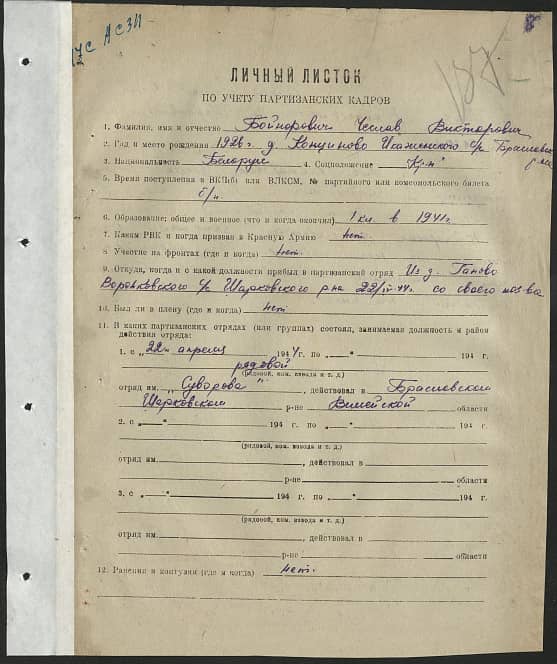 ЛИЧНЫЙ ЛИСТОК
ПО УЧЕТУ ПАРТИЗАНСКИХ КАДРОВ
1. Фамилия, имя и отчество Войнорович Чеслав Викторович
2. Год и место рождения 1928 г. д. Концыново Иказненского с/с Браславск
3. Национальность Белорус 4. Соцположение Кр-н
5. Время поступления в ВКП(б) или ВЛКСМ, № партийного или комсомольского билета
б/п
6. Образование: общее и военное (что и когда окончил) 1 кл. в 1941 г.
7. Каким РВК и когда призван в Красную Армию нет.
8. Участие на фронтах (где и когда) нет.
9. Откуда, когда и с какой должности прибыл в партизанский отряд Из д.
с/с Шарковского р-на 22/IV-44 г. со своего
10. Был ли в плену (где и когда) нет
11. В каких партизанских отрядах (или группах) состоял, занимаемая должность и район
действия отряда:
1. с „22" апреля 1944 г. по „ " 194 г.
рядовой
(рядовой, ком. взвода и т. д.)
отряд им. „Суворова", действовал в Браславском
Шарковском р-не Вилейской области
2. с „ " 194 г. по „ " 194 г.
(рядовой, ком. взвода и т. д.)
отряд им. , действовал в
р-не области
3. с „ " 194 г. по „ " 194 г.
(рядовой, ком. взвода и т. д.)
отряд им. , действовал в
р-не области
12. Ранения и контузии (где и когда) нет.